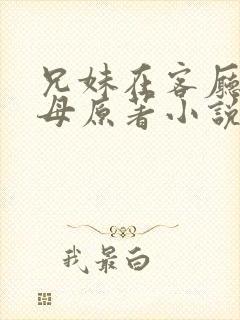 兄妹在客厅
母原著小説
我最白